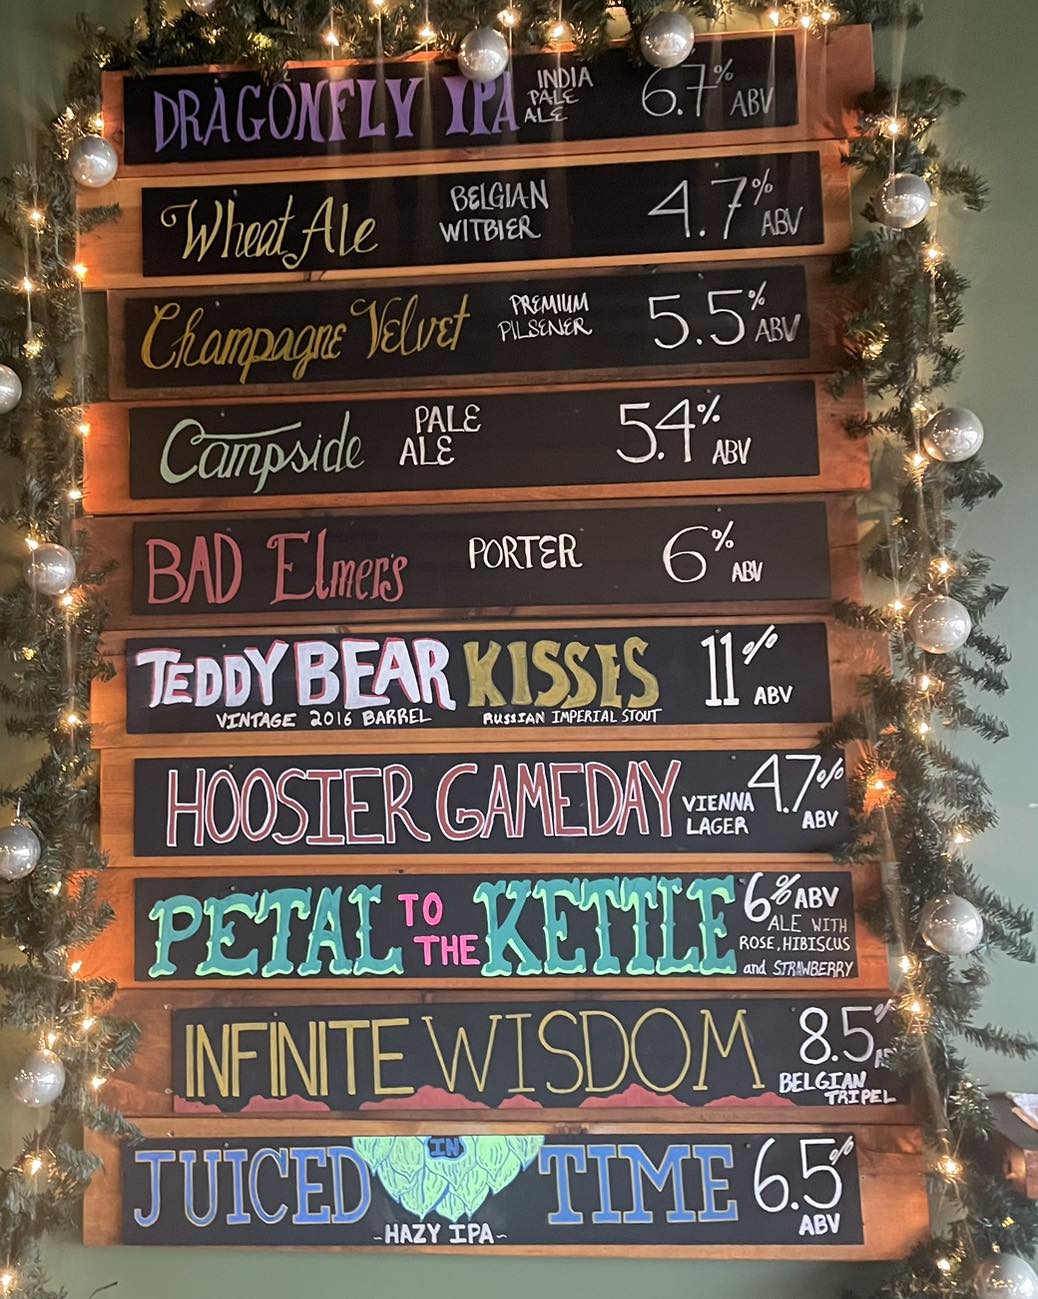 DRAGONFLY IPA INDIA PALE ALE 6.7% ABV
Wheat Ale BELGIAN WITBIER 4.7% ABV
Champagne Velvet PREMIUM PILSENER 5.5% ABV
Campside PALE ALE 5.4% ABV
BAD Elmer's PORTER 6% ABV
TEDDY BEAR KISSES 11% ABV
VINTAGE 2016 BARREL RUSSIAN IMPERIAL STOUT
HOOSIER GAMEDAY VIENNA LAGER 4.7% ABV
PETAL TO THE KETTLE 6% ABV
ALE WITH
ROSE, HIBISCUS
and STRAWBERRY
INFINITE WISDOM 8.5%
BELGIAN
TRIPEL
JUICED IN TIME 6.5% ABV
~HAZY IPA~